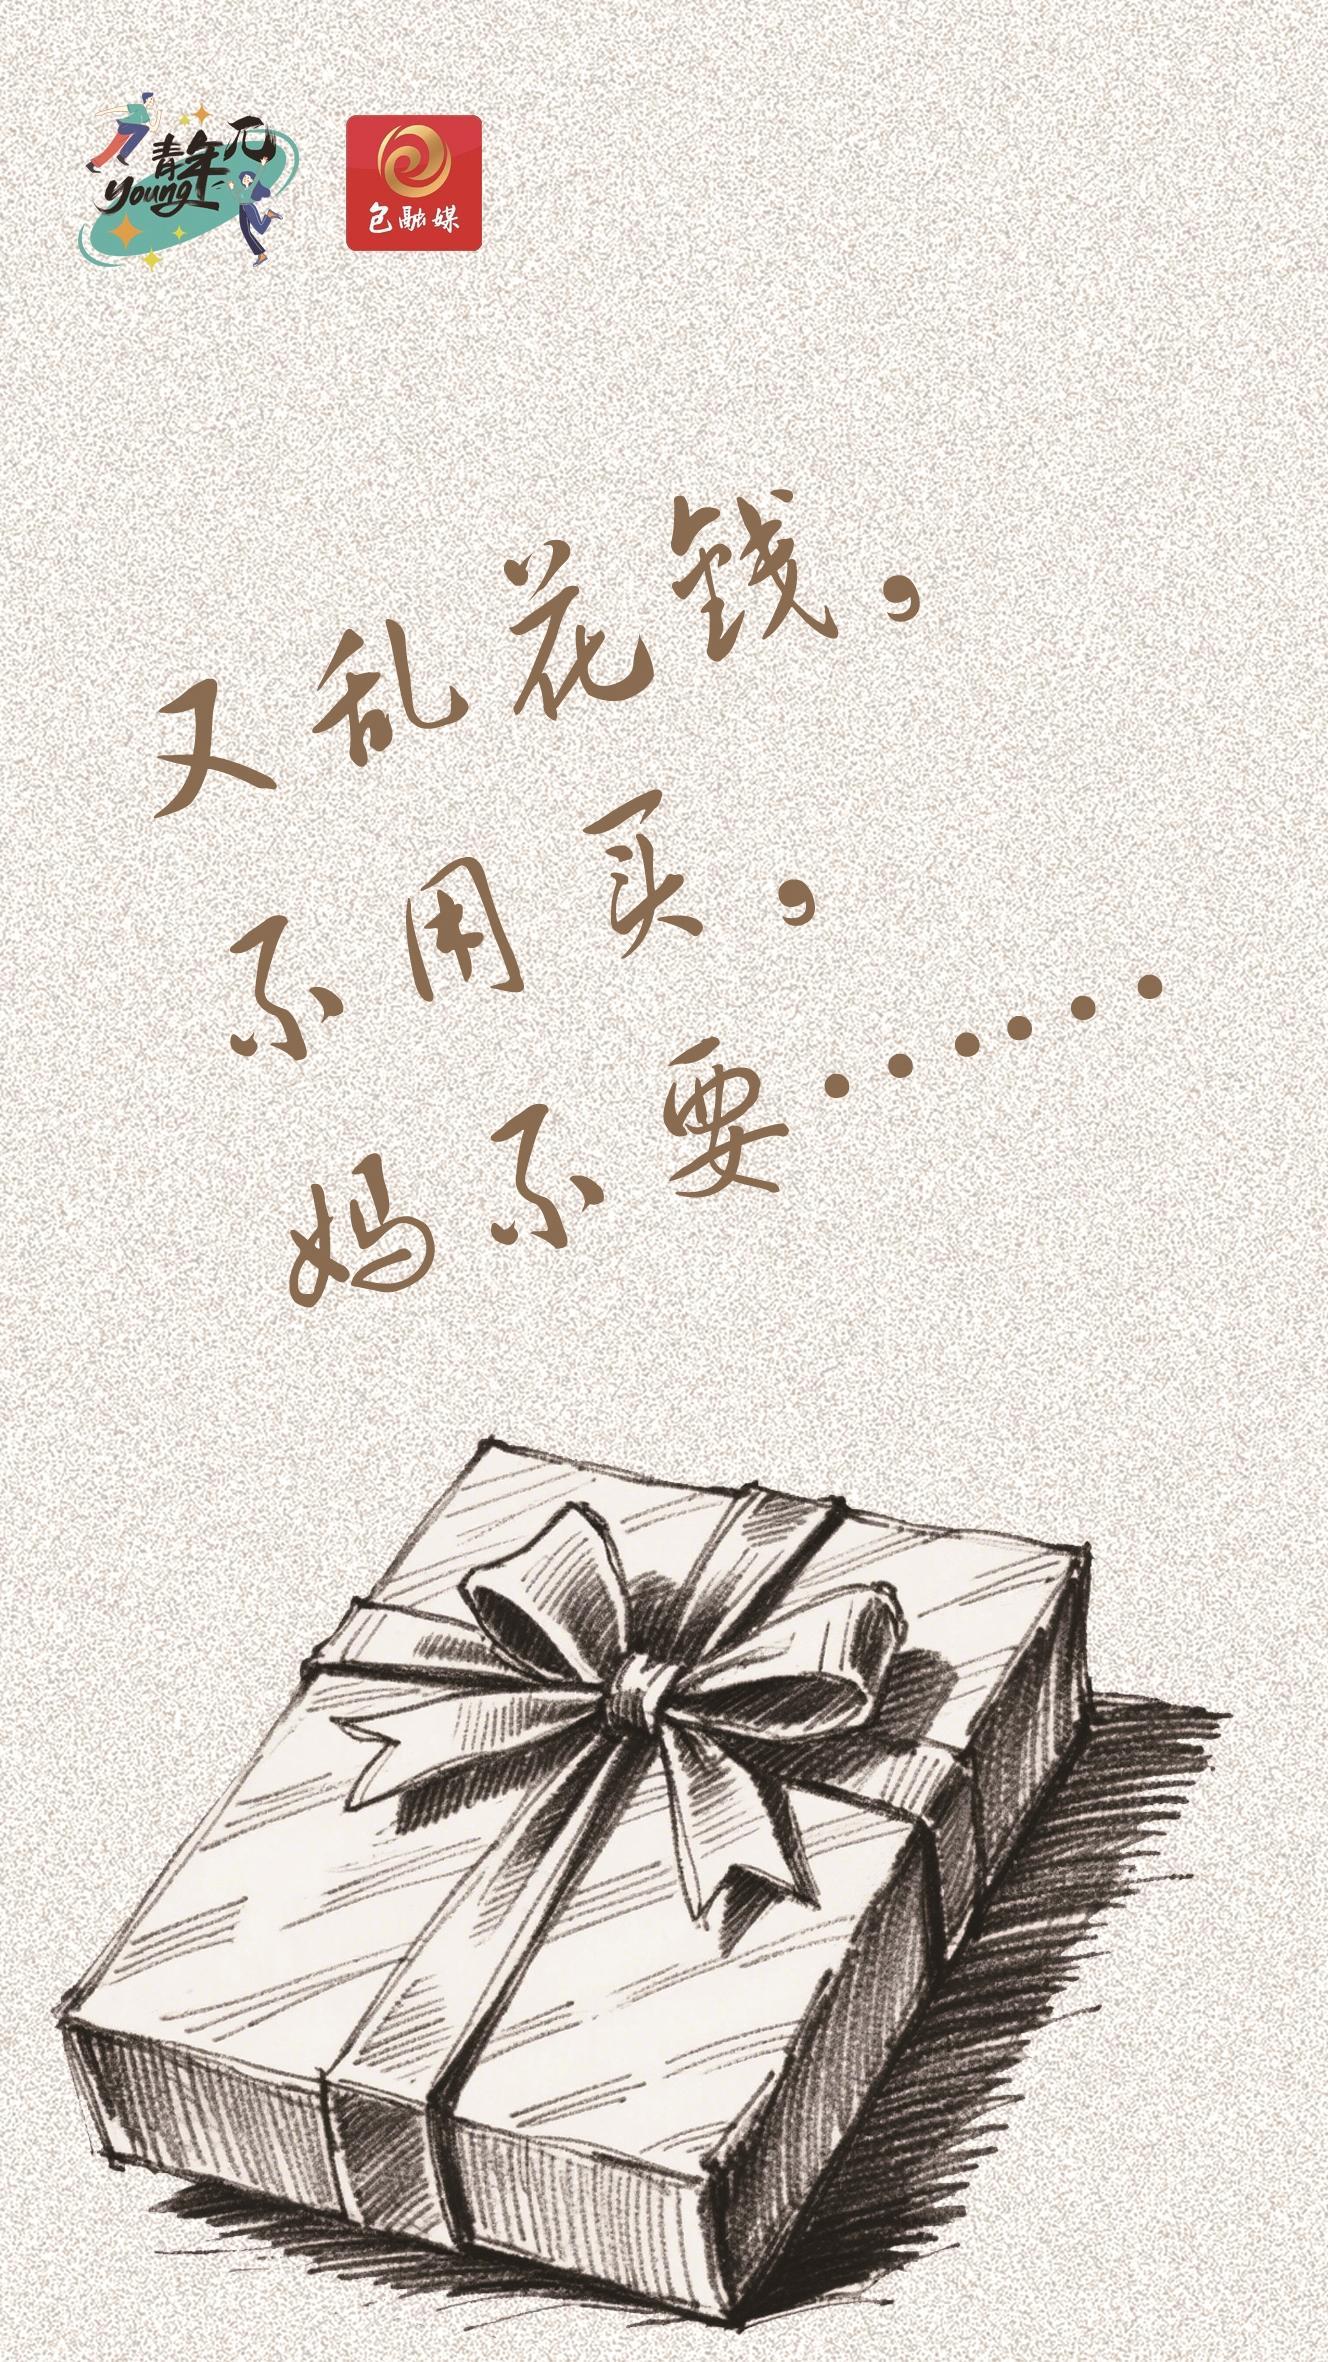 青年兀
young
包融媒
又乱花钱，
不用买，
妈不要……